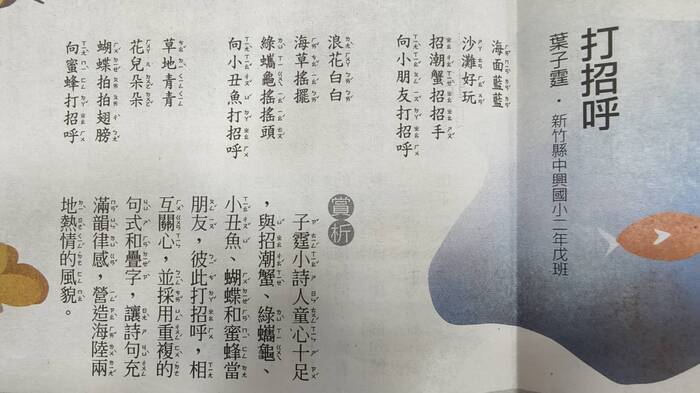 打招呼
葉子霆・新竹縣中興國小二年戊班
海面藍藍
沙灘好玩
招潮蟹招招手
向小朋友打招呼
浪花白白
海草搖擺
綠蠵龜搖搖頭
向小丑魚打招呼
草地青青
花兒朵朵
蝴蝶拍拍翅膀
向蜜蜂打招呼
賞析
子霆小詩人童心十足
，與招潮蟹、綠蠵龜、
小丑魚、蝴蝶和蜜蜂當
朋友，彼此打招呼，相
互關心，並採用重複的
句式和疊字，讓詩句充
滿韻律感，營造海陸兩
地熱情的風貌。